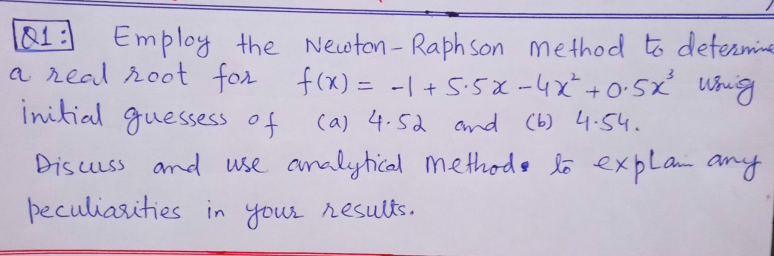 Q1: Employ the Newton-Raphson method to determine
a real root for f(x) = -1 + 5.5x - 4x² + 0.5x³ using
initial guessess of (a) 4.52 and (b) 4.54.
Discuss and use analytical methods to explain any
peculiarities in your results.